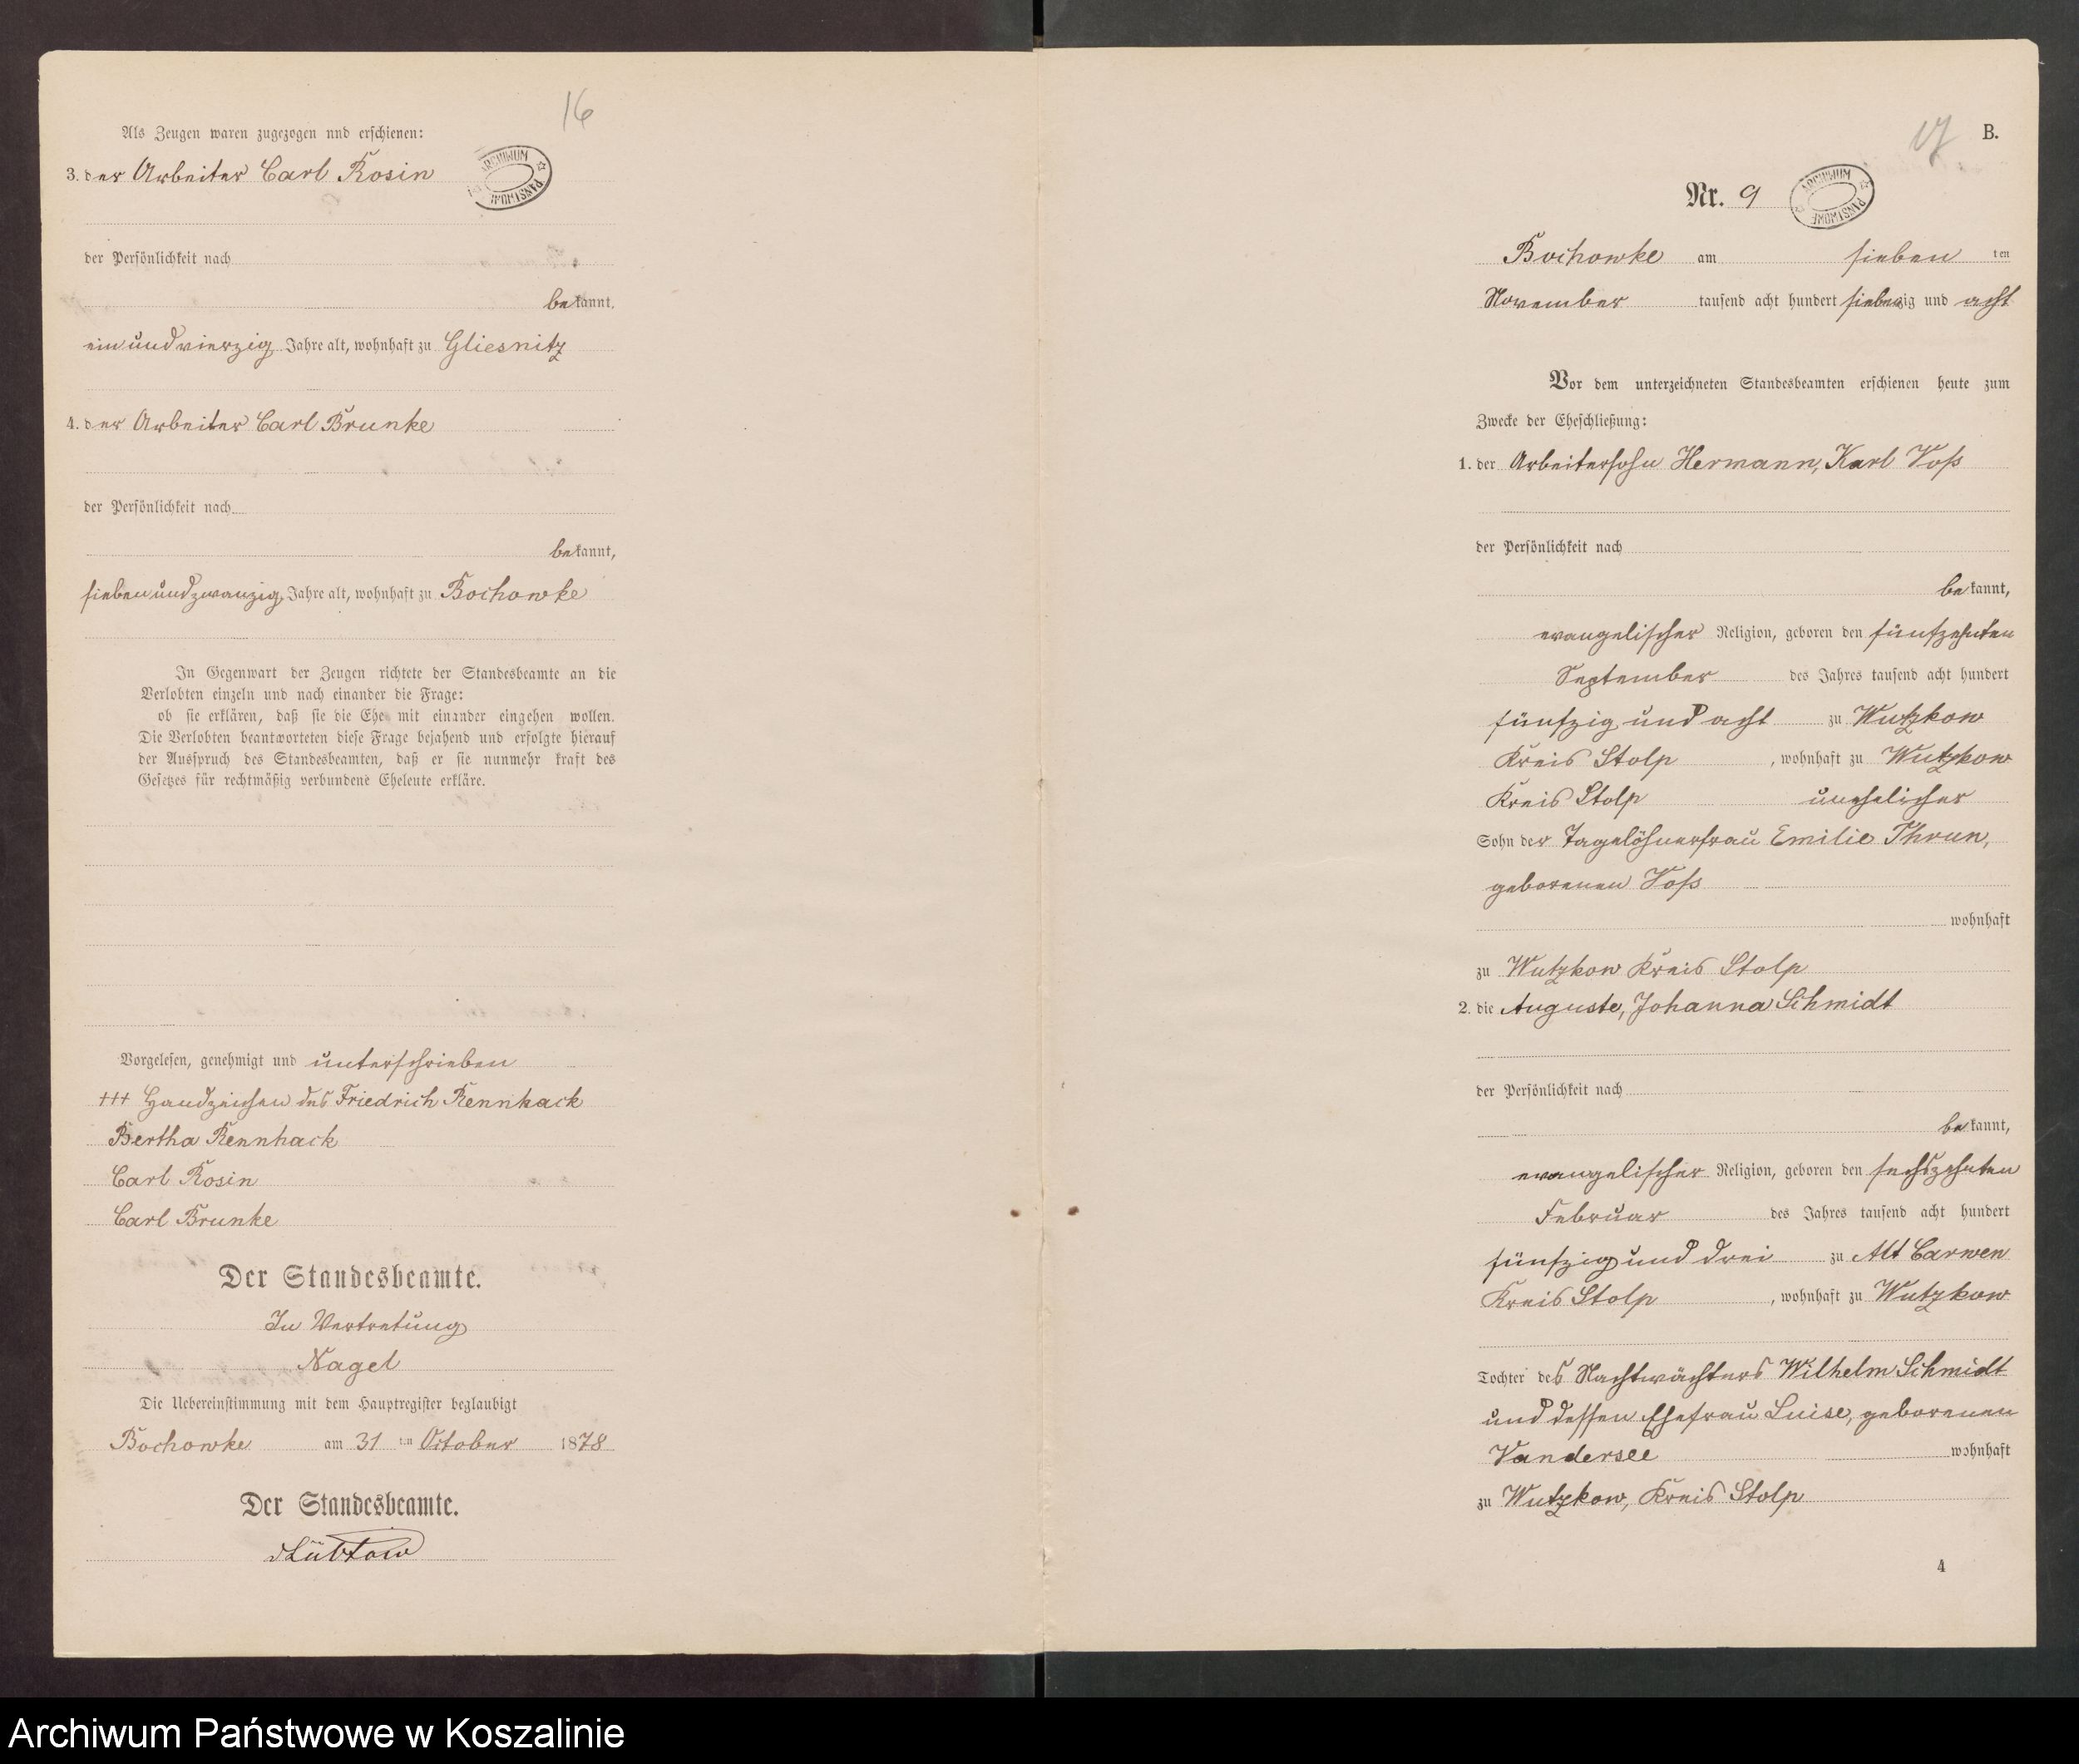 16
Als Zeugen waren zugezogen nnd erschienen:
ARCHIWUM PAŃSTWOWE
3. der Arbeiter Carl Rosin
der Persönlichkeit nach
bekannt,
einundvierzig Jahre alt, wohnhaft zu Gliesnitz
4. der Arbeiter Carl Brunke
der Persönlichkeit nach
bekannt,
siebenundzwanzig Jahre alt, wohnhaft zu Bochowke
In Gegenwart der Zeugen richtete der Standesbeamte an die
Verlobten einzeln und nach einander die Frage:
ob sie erklären, daß sie die Ehe mit einander eingehen wollen.
Die Verlobten beantworteten diese Frage bejahend und erfolgte hierauf
der Ausspruch des Standesbeamten, daß er sie nunmehr kraft des
Gesetzes für rechtmäßig verbundene Eheleute erkläre.
Vorgelesen, genehmigt und unterschrieben
+++ Handzeichen des Friedrich Rennhack
Bertha Rennhack
Carl Rosin
Carl Brunke
Der Standesbeamte.
In Vertretung
Nagel
Die Uebereinstimmung mit dem Hauptregister beglaubigt
Bochowke am 31 ten October 1878
Der Standesbeamte.
vLübtow
17
B.
Nr. 9
ARCHIWUM PAŃSTWOWE
Bochowke am sieben ten
November tausend acht hundert siebenzig und acht
Vor dem unterzeichneten Standesbeamten erschienen heute zum
Zwecke der Eheschließung:
1. der Arbeitersohn Hermann, Karl Voß
der Persönlichkeit nach
bekannt,
evangelischer Religion, geboren den fünfzehnten
September des Jahres tausend acht hundert
fünfzig und acht zu Wutzkow
Kreis Stolp, wohnhaft zu Wutzkow
Kreis Stolp unehelicher
Sohn der Tagelöhnerfrau Emilie Thrun,
geborenen Voß
wohnhaft
zu Wutzkow Kreis Stolp
2. die Auguste, Johanna Schmidt
der Persönlichkeit nach
bekannt,
evangelischer Religion, geboren den sechszehnten
Februar des Jahres tausend acht hundert
fünfzig und drei zu Alt Carwen
Kreis Stolp, wohnhaft zu Wutzkow
Tochter des Nachtwächters Wilhelm Schmidt
und dessen Ehefrau Luise, geborenen
Vandersee wohnhaft
zu Wutzkow, Kreis Stolp
4
Archiwum Państwowe w Koszalinie